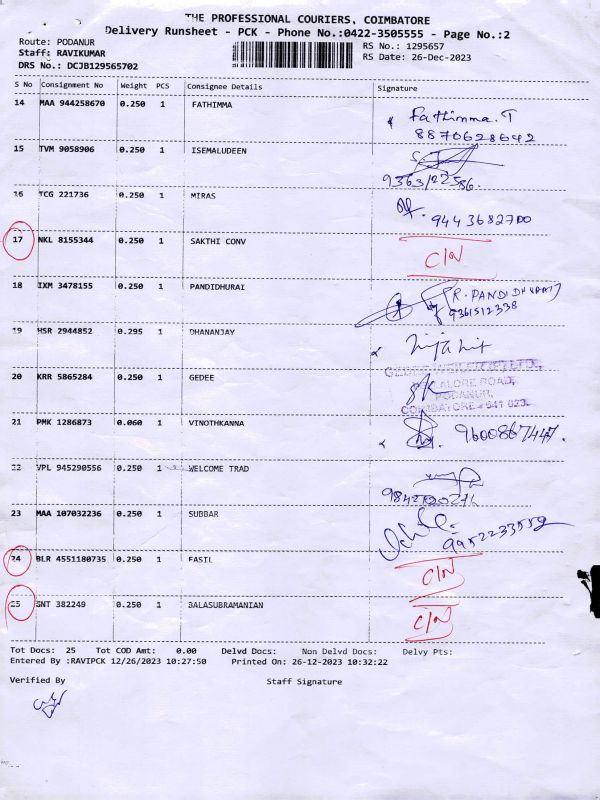 THE PROFESSIONAL COURIERS, COIMBATORE
Delivery Runsheet - PCK - Phone No.:0422-3505555 - Page No.:2
Route: PODANUR RS No.: 1295657
Staff: RAVIKUMAR RS Date: 26-Dec-2023
DRS No.: DCJB129565702
S No Consignment No Weight PCS Consignee Details Signature
14 MAA 944258670 0.250 1 FATHIMMA Fathimma.T
8870628642
15 TVM 9058906 0.250 1 ISEMALUDEEN
16 TCG 221736 0.250 1 MIRAS
17 NKL 8155344 0.250 1 SAKTHI CONV C/N
18 IXM 3478155 0.250 1 PANDIDHURAI (R. PANDIDHURAI)
9361512338
19 HSR 2944852 0.295 1 DHANANJAY
20 KRR 5865284 0.250 1 GEDEE
PODANUR,
21 PMK 1286873 0.060 1 VINOTHKANNA 9600867447.
22 VPL 945290556 0.250 1 WELCOME TRAD
23 MAA 107032236 0.250 1 SUBBAR
9952233552
24 BLR 4551180735 0.250 1 FASIL C/N
25 SNT 382249 0.250 1 BALASUBRAMANIAN C/N
Tot Docs: 25 Tot COD Amt: 0.00 Delvd Docs: Non Delvd Docs: Delvy Pts:
Entered By :RAVIPCK 12/26/2023 10:27:50 Printed On: 26-12-2023 10:32:22
Verified By Staff Signature